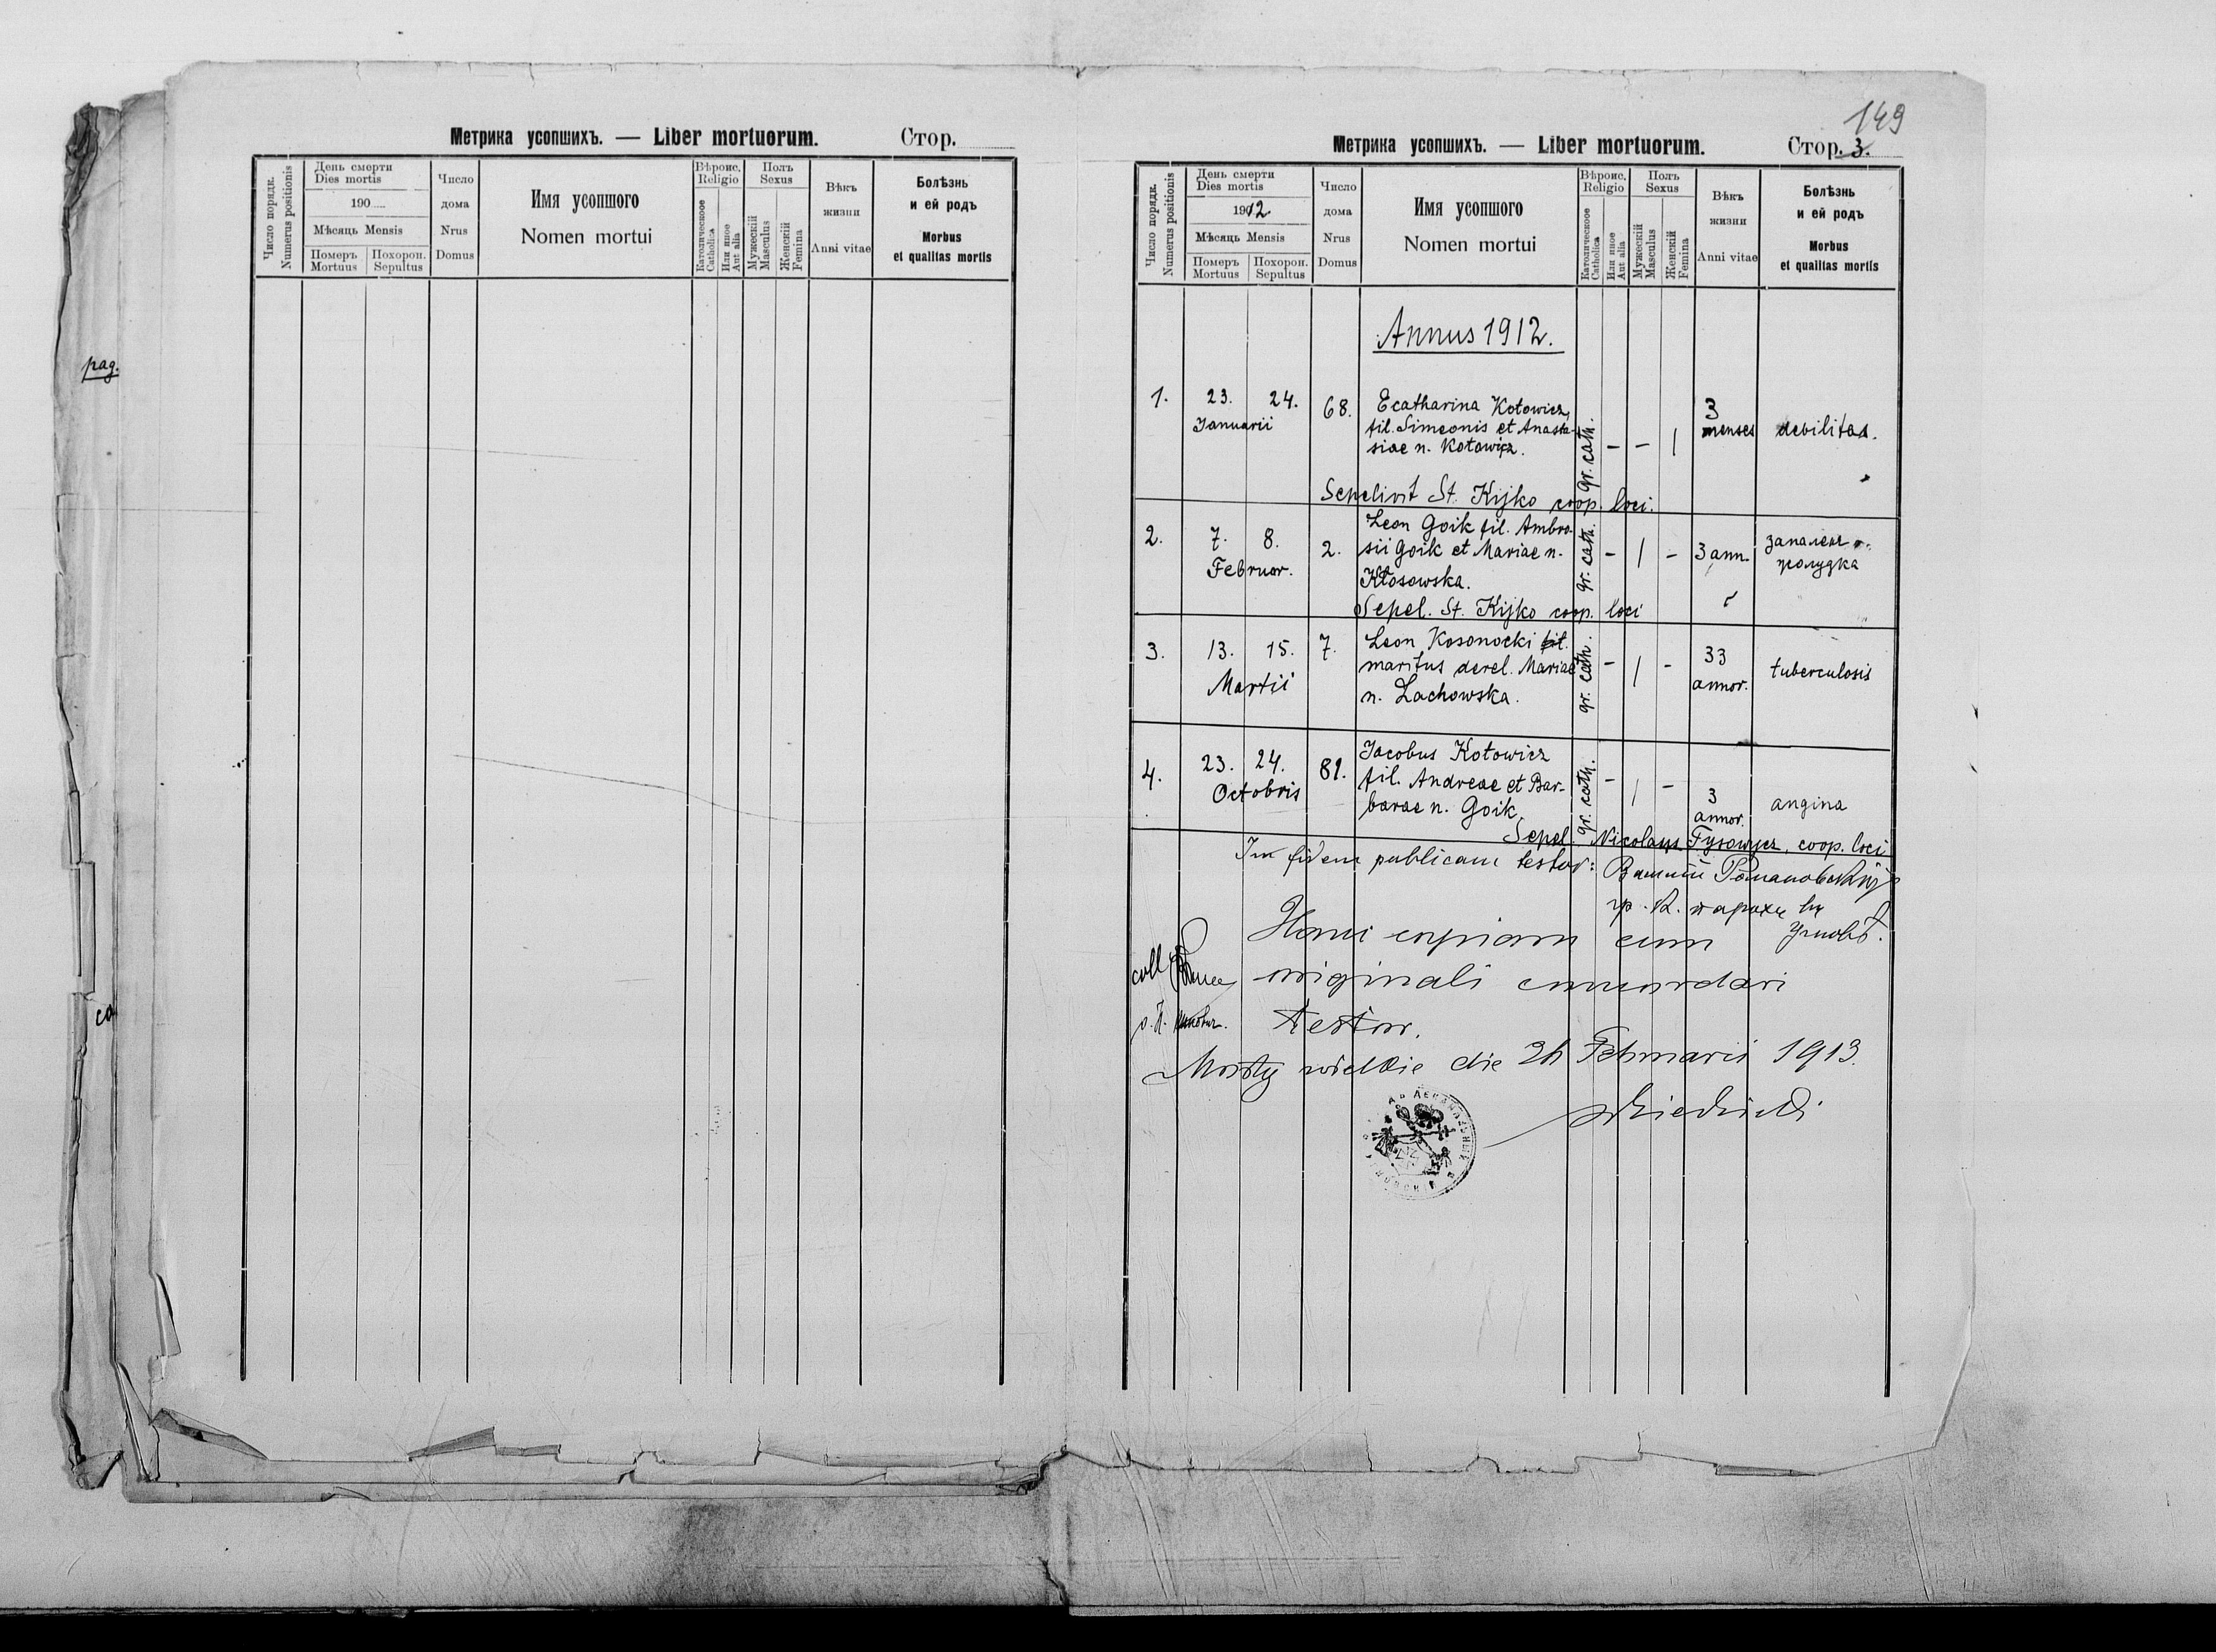 pag.
co
Метрика усопшихъ. — Liber mortuorum. Стор.
Число порядк.
Numerus positionis
День смерти
Dies mortis
190
Мѣсяць Mensis
Померъ
Mortuus
Похорон.
Sepultus
Число
дома
Nrus
Domus
Имя усопшого
Nomen mortui
Вѣроис.
Religio
Католическоое
Catholica
Или иное
Aut alia
Полъ
Sexus
Мужескій
Masculus
Женскій
Femina
Вѣкъ
жизни
Anni vitae
Болѣзнь
и ей родъ
Morbus
et qualitas mortis
149
Метрика усопшихъ. — Liber mortuorum. Стор. 3.
Число порядк.
Numerus positionis
День смерти
Dies mortis
1912
Мѣсяць Mensis
Померъ
Mortuus
Похорон.
Sepultus
Число
дома
Nrus
Domus
Имя усопшого
Nomen mortui
Вѣроис.
Religio
Католическоое
Catholica
Или иное
Aut alia
Полъ
Sexus
Мужескій
Masculus
Женскій
Femina
Вѣкъ
жизни
Anni vitae
Болѣзнь
и ей родъ
Morbus
et qualitas mortis
Annus 1912.
1. 23. 24. Januarii 68. Ecatharina Kotowicz,
fil. Simeonis et Anasta-
siae n. Kotowicz.
gr. cath. – – | 3 menses debilitas.
Sepelivit St. Kijko coop. loci.
2. 7. 8. Februar. 2. Leon Goik fil. Ambro-
sii Goik et Mariae n.
Kłosowska.
gr. cath. – | – 3 ann. запалене
жолудка
Sepel. St. Kijko coop. loci
3. 13. 15. Martii 7. Leon Kosonocki fil.
maritus derel. Mariae
n. Lachowska.
gr. cath. – | – 33 annor. tuberculosis
4. 23. 24. Octobris 81. Jacobus Kotowicz
fil. Andreae et Bar-
barae n. Goik
gr. cath. – | – 3 annor. angina
Sepel. Nicolaus coop. loci
In fidem publicam testor: Василій Романовскій
гр. к. парохъ въ
Угновѣ.
Hanc copiam cum
coll
originali concordari
testor.
Mosty wielkie die 26 Februarii 1913.